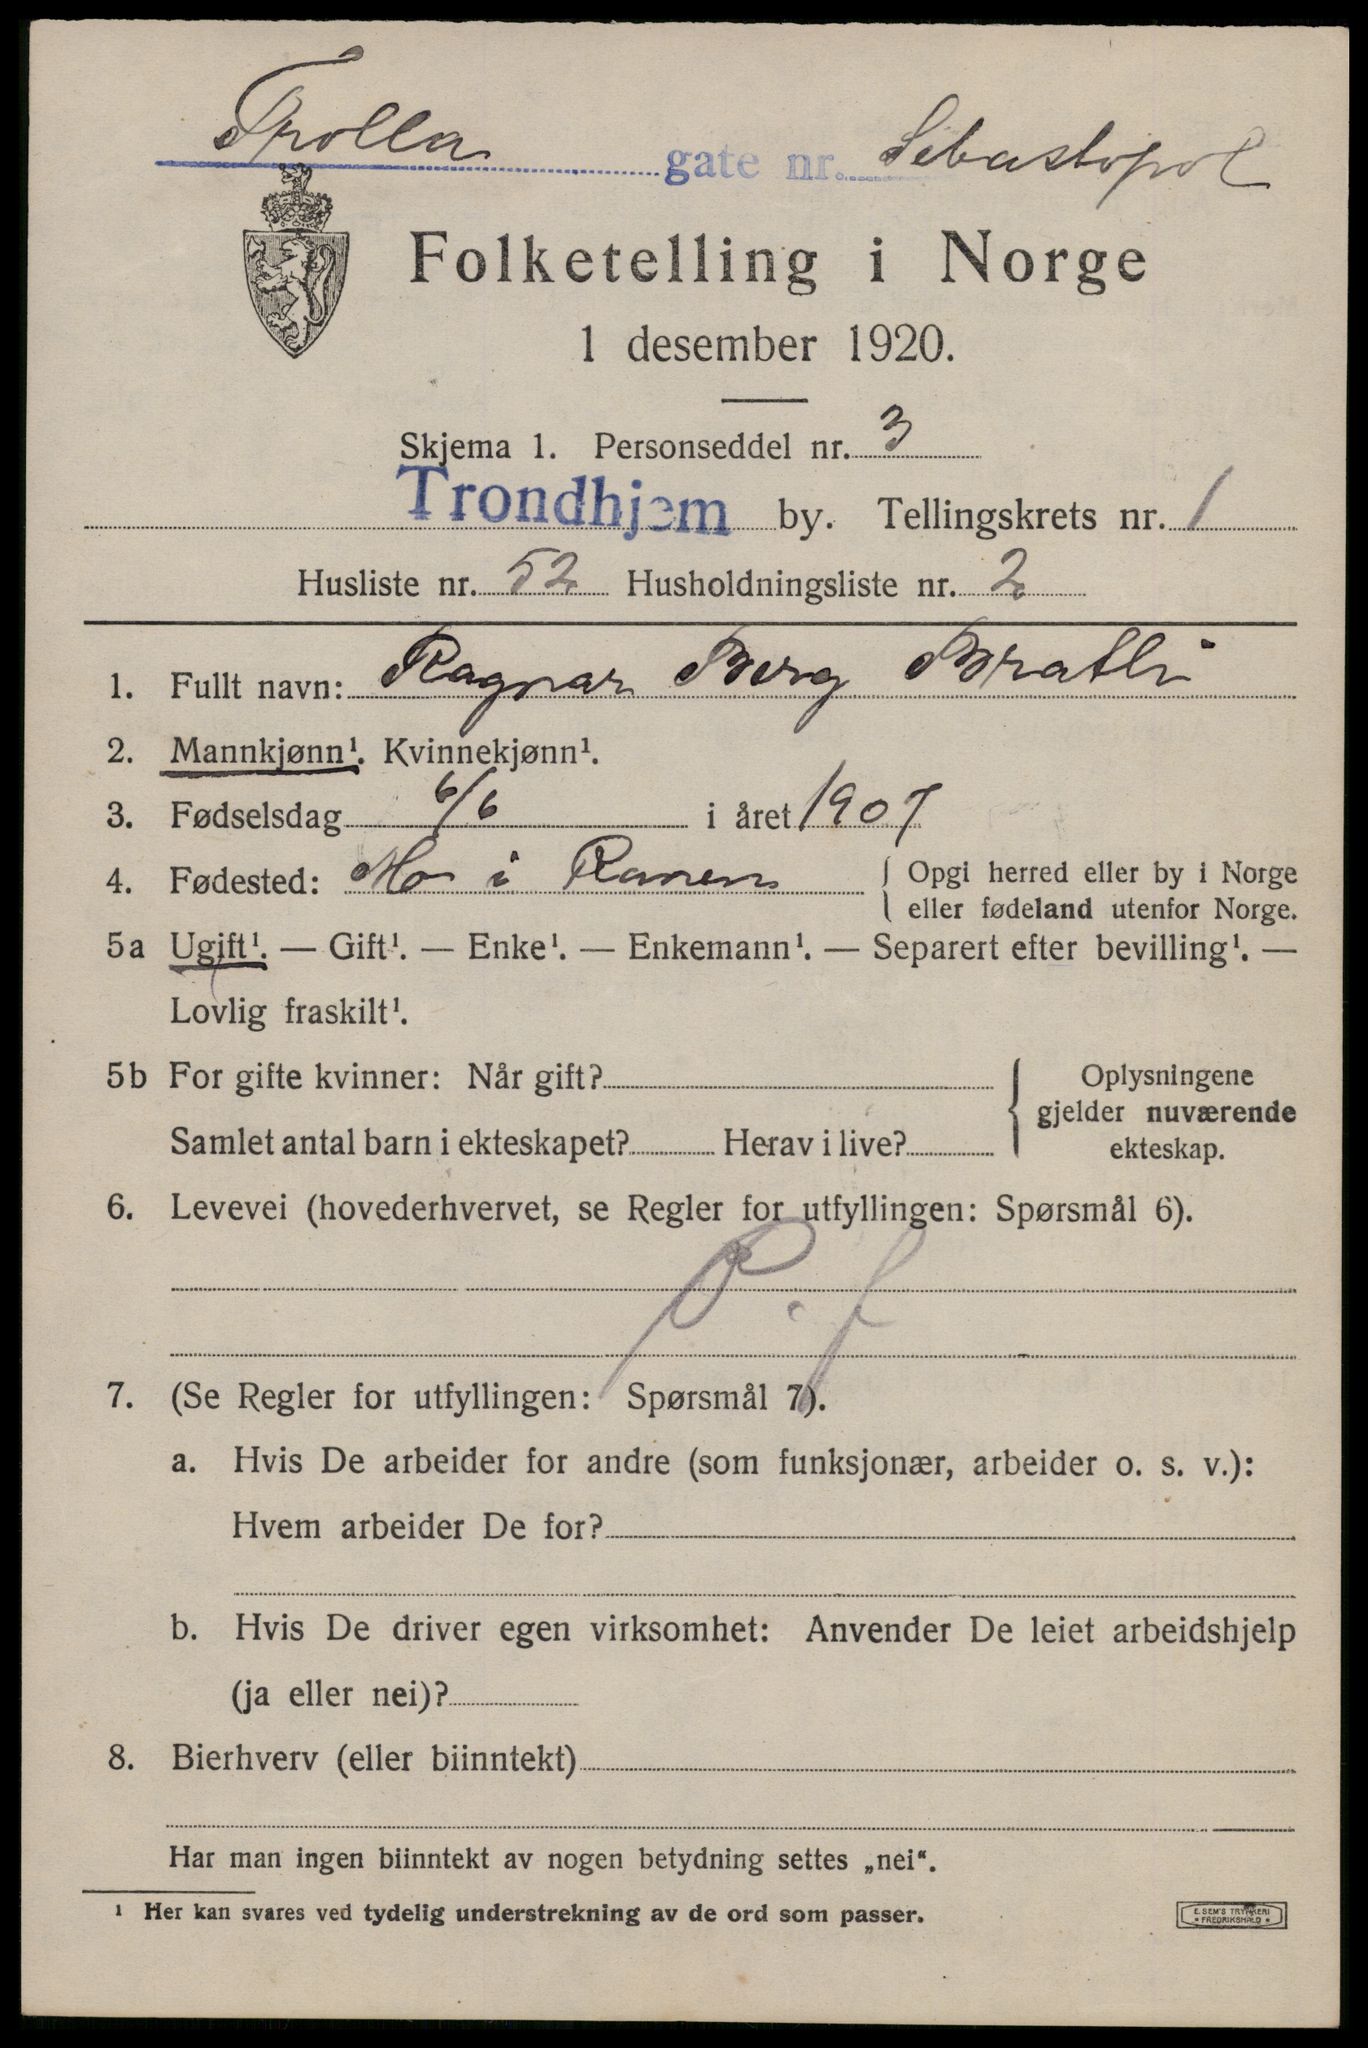 Trolla gate nr. Sebastopol
Folketelling i Norge
1 desember 1920.
Skjema 1. Personseddel nr. 3
Trondhjem by. Tellingskrets nr. 1
Husliste nr. 52 Husholdningsliste nr. 2
1. Fullt navn: Ragnar Berg Bratli
2. Mannkjønn¹. Kvinnekjønn¹.
3. Fødselsdag 6/6 i året 1907
4. Fødested: Mo i Ranen { Opgi herred eller by i Norge
eller fødeland utenfor Norge.
5a Ugift¹. — Gift¹. — Enke¹. — Enkemann¹. — Separert efter bevilling¹. —
Lovlig fraskilt¹.
5b For gifte kvinner: Når gift?
Samlet antal barn i ekteskapet? Herav i live?
Oplysningene
gjelder nuværende
ekteskap.
6. Levevei (hovederhvervet, se Regler for utfyllingen: Spørsmål 6).
P. f
7. (Se Regler for utfyllingen: Spørsmål 7).
a. Hvis De arbeider for andre (som funksjonær, arbeider o. s. v.):
Hvem arbeider De for?
b. Hvis De driver egen virksomhet: Anvender De leiet arbeidshjelp
(ja eller nei)?
8. Bierhverv (eller biinntekt)
Har man ingen biinntekt av nogen betydning settes „nei“.
¹ Her kan svares ved tydelig understrekning av de ord som passer.
E. SEM'S TRYKKERI
* FREDRIKSHALD *